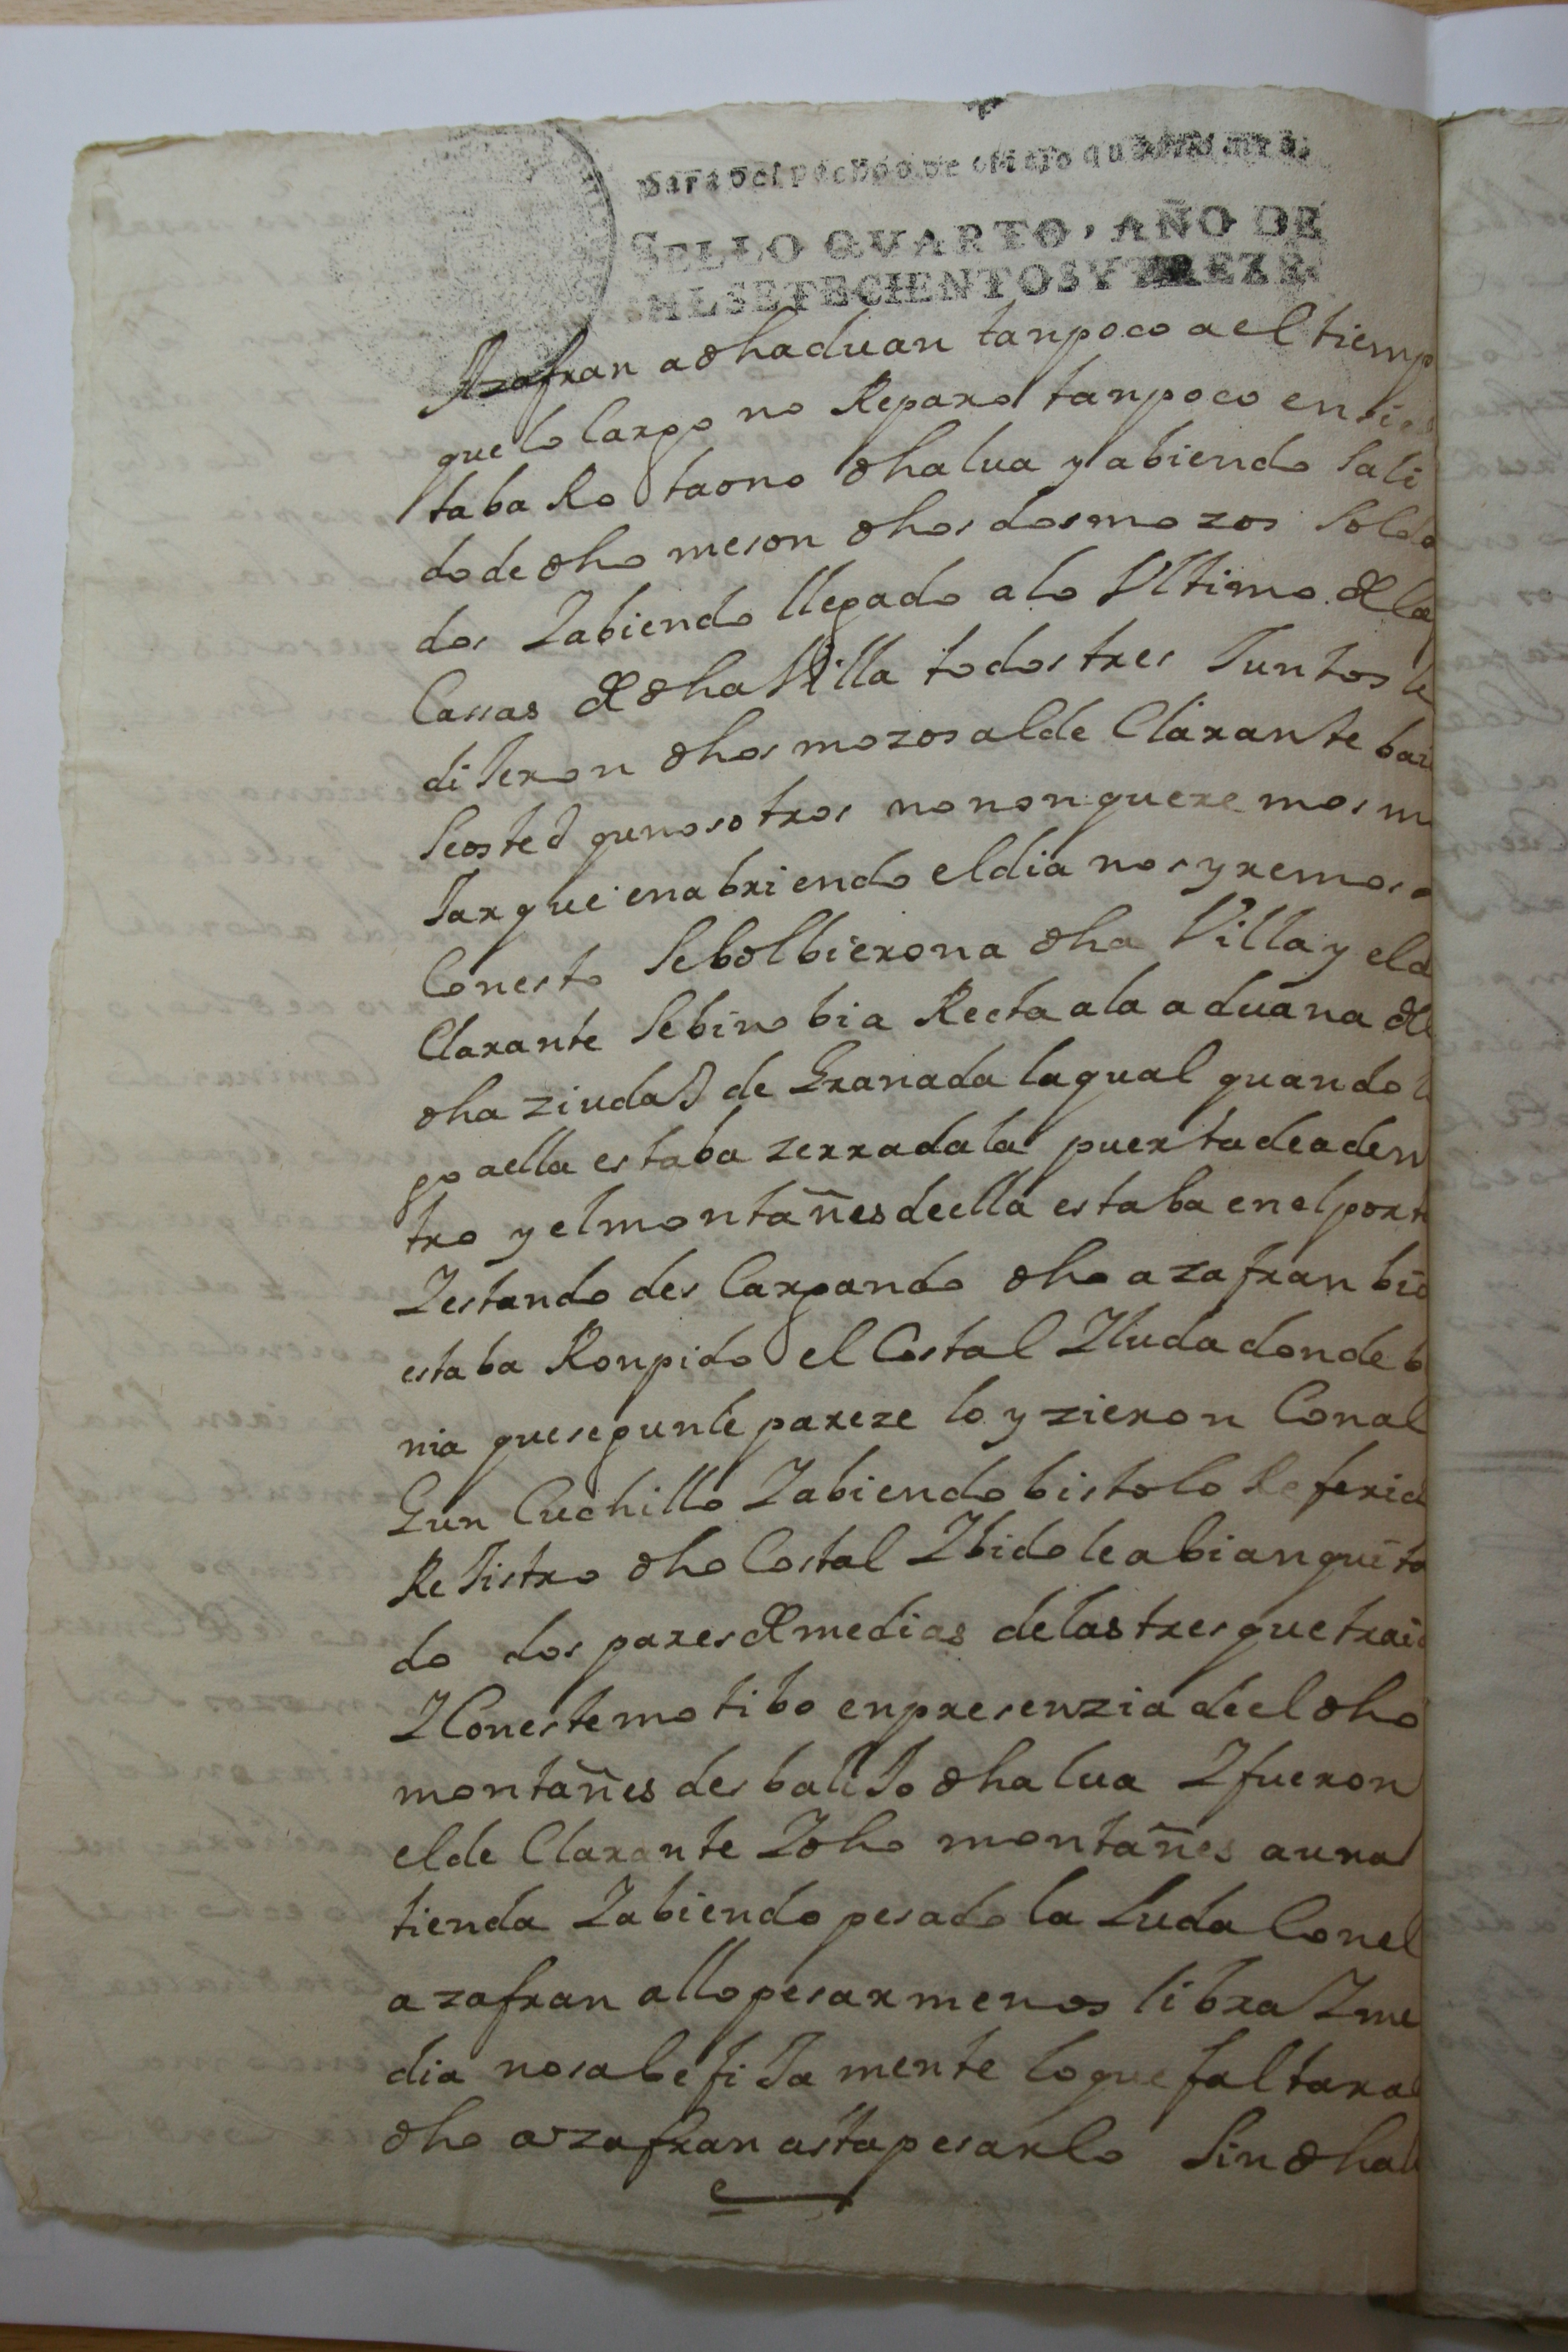 para despachos de oficio quatro mrs.
SELLO QVARTO, AÑO DE
MIL SETECIENTOS Y TREZE.
Azafran a dha aduan tanpoco a el tiemp
que lo cargo no Reparo tanpoco en si es
taba Rota o no dha lua y abiendo sali
do de dho meson dhos dos mozos solda
dos Yabiendo llegado a lo Ultimo de las
Cassas de dha Villa todos tres Juntos le
diJeron dhos mozos al de Clarante bai
se osted que nosotros no non queremos m
Jar que en abriendo el dia nos yremos a
Con esto se bolbieron a dha Villa y el d
Clarante se bino bia Recta a la aduana de
dha ziudad de Granada la qual quando l
go a ella estaba zerrada la puerta de aden
tro y el montañes de ella estaba en el port
Yestando des Cargando dho azafran bio
estaba Ronpido el Costal Yluda donde b
nia que segun le pareze lo yzieron Con al
Gun Cuchillo Yabiendo bisto lo Referid
ReJistro dho Costal Ybido le abian quita
do dos pares de medias de las tres que traia
YCon este motibo en presenzia de el dho
montañes des baliJo dha lua Yfueron
el de Clarante Ydho montañes a una
tienda Yabiendo pesado la Luda Con el
azafran allo pesar menos libra Yme
dia no sabe fiJa mente lo que faltara
dho azafran asta pesarlo sin dha l